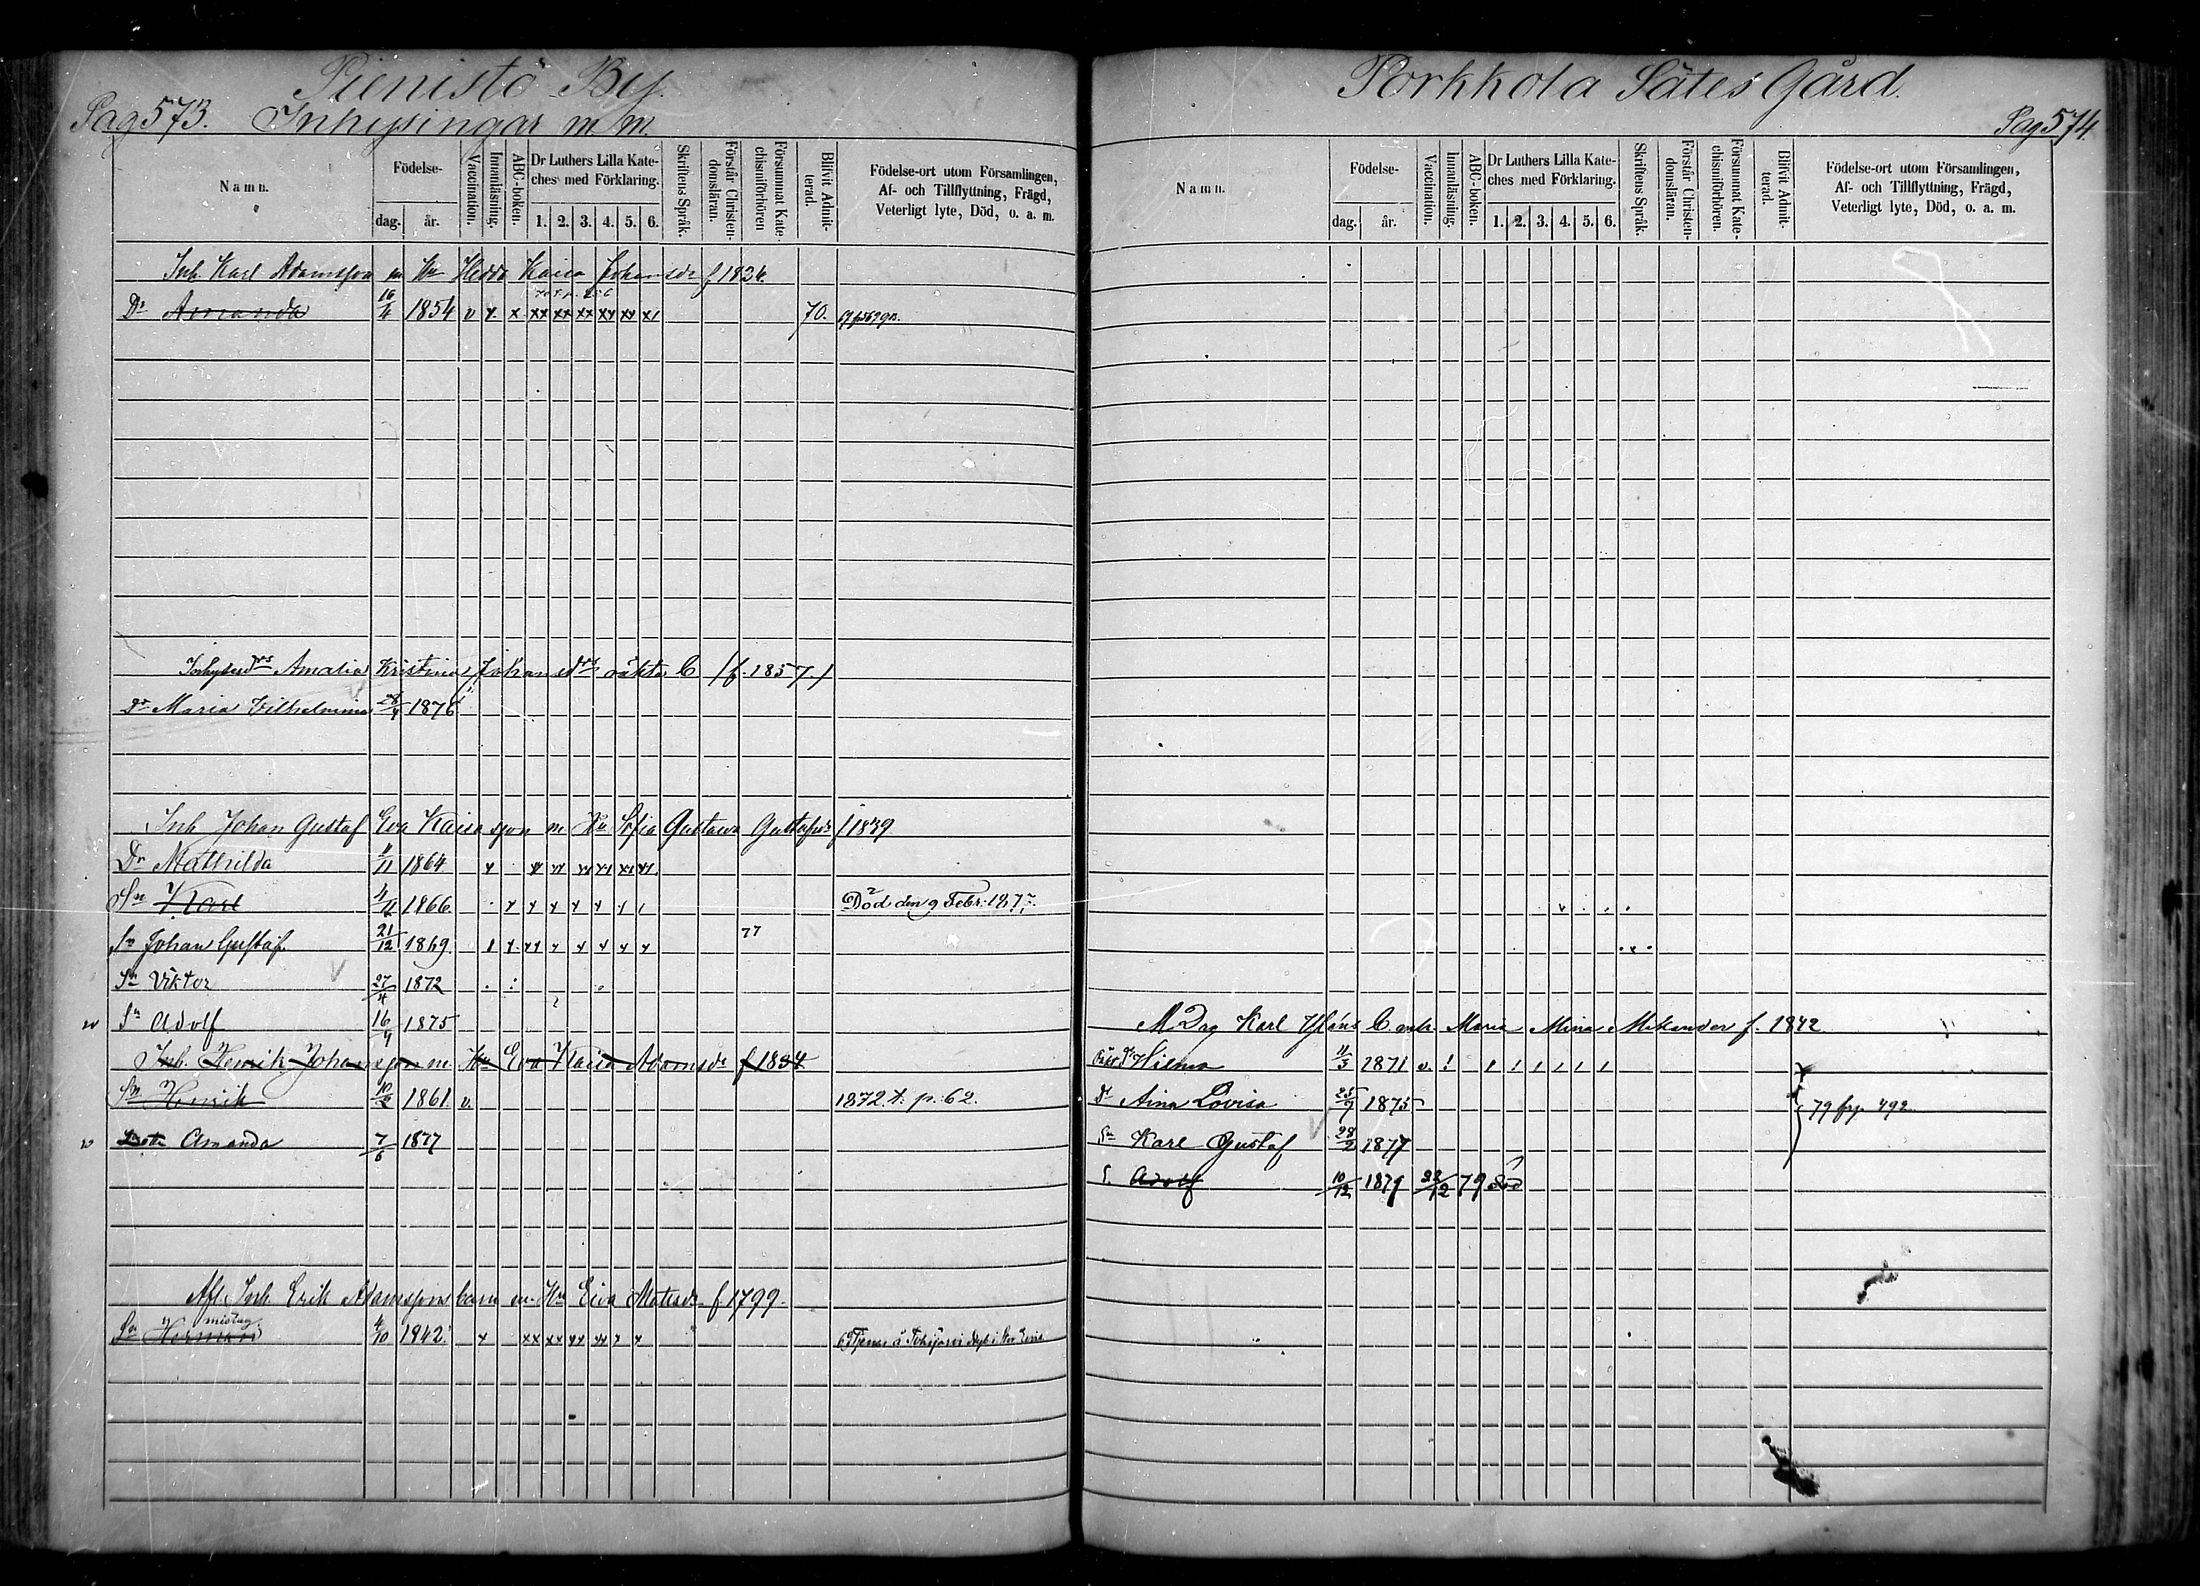 Pienistö By.
Pag 573. Inhysingar m m.
Namn.
Födelse-
dag. år.
Vaccination.
Innanläsning.
ABC-boken.
Dr Luthers Lilla Kate-
ches med Förklaring.
1. 2. 3. 4. 5. 6.
Skriftens Språk.
Förstår Christen-
domsläran.
Försummat Kate-
chismiförhören
Blifvit Admit-
terad.
Födelse-ort utom Församlingen,
Af- och Tillflyttning, Frägd,
Veterligt lyte, Död, o. a. m.
Inh. Karl Adamsson m Hu Hedda Kaisa Johansdr f 1824.
Dr Amanda 16/4 1854 v x x xx xx xx xx xx x1 70.
Inhysesdrs Amalia Kristina Johansdrs oäkta B. /f. 1857./
Dr Maria Vilhelmina 28/4 1876
Inh Johan Gustaf Eva Kaisasson m Hu Sofia Gustava Gustafsdr f 1839
Dr Mathilda 11/11 1864
Sn Karl 1866. Död den 9 Febr. 1877.
Sn Johan Gustaf 21/12 1869. 77
Sn Viktor 27/4 1872
Sn Adolf 16/4 1875
Inh. Henrik Johansson m. Hu Eva Kaisa Adamsdr f 1834
Sn Henrik 10/2 1861. v. 1872 t. p. 62.
Amanda 7/6 1877
Afl. Inh. Erik Adamssons barn m. Hu Eva Matsdr f 1799.
Sn Herman mistag. 4/10 1842.
Porkkola Sätes Gård.
Pag 574.
Namn.
Födelse-
dag. år.
Vaccination.
Innanläsning.
ABC-boken.
Dr Luthers Lilla Kate-
ches med Förklaring.
1. 2. 3. 4. 5. 6.
Skriftens Språk.
Förstår Christen-
domsläran.
Försummat Kate-
chismiförhören.
Blifvit Admit-
terad.
Födelse-ort utom Församlingen,
Af- och Tillflyttning, Frägd,
Veterligt lyte, Död, o. a. m.
Karl Maria Mina f. 1842
Hilma 11/3 1871 v. ! 1 1 1 1 1 1
Dr Aina Lovisa 25/7 1875 79 frp. 492
Sn Karl Gustaf 28/2 1877
S. Adolf 10/12 1879 22/12 79 död